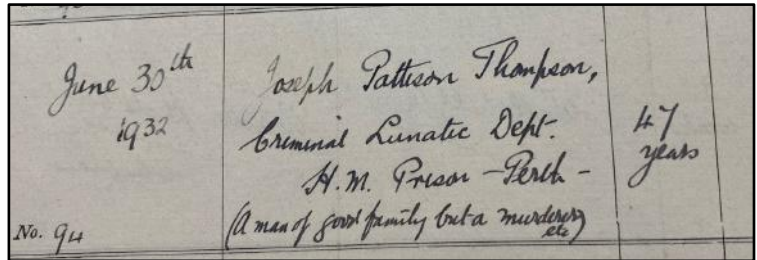 June 30th
1932
No. 94
Joseph Pattison Thompson,
Criminal Lunatic Dept.
H.M. Prison - Perth -
(A man of good family but a murderer
etc)
47
years